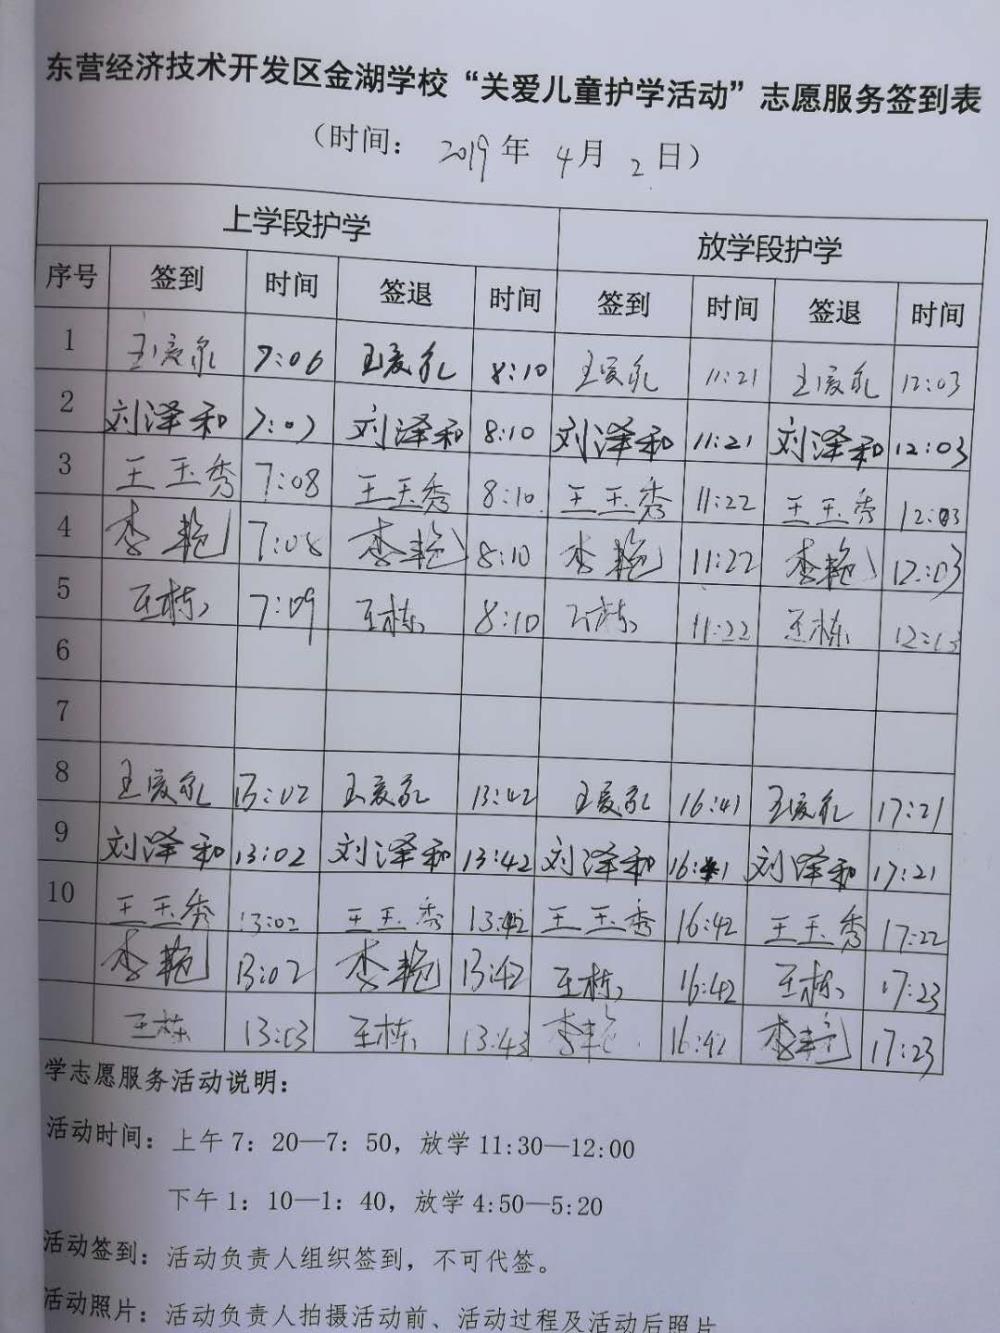 东营经济技术开发区金湖学校“关爱儿童护学活动”志愿服务签到表
（时间： 2019 年 4 月 2 日）
上学段护学 放学段护学
序号 签到 时间 签退 时间 签到 时间 签退 时间
1 7:06 8:10 11:21 12:03
2 刘泽和 7:07 刘泽和 8:10 刘泽和 11:21 刘泽和 12:03
3 王玉秀 7:08 王玉秀 8:10 王玉秀 11:22 王玉秀 12:03
4 李艳 7:08 李艳 8:10 李艳 11:22 李艳 12:03
5 王栋 7:09 王栋 8:10 王栋 11:22 王栋 12:03
6
7
8 13:02 13:42 16:41 17:21
9 刘泽和 13:02 刘泽和 13:42 刘泽和 16:41 刘泽和 17:21
10 王玉秀 13:02 王玉秀 13:42 王玉秀 16:42 王玉秀 17:22
李艳 13:02 李艳 13:42 王栋 16:42 王栋 17:23
王栋 13:03 王栋 13:43 李艳 16:42 李艳 17:23
学志愿服务活动说明：
活动时间：上午 7：20—7：50，放学 11:30—12:00
下午 1：10—1：40，放学 4:50—5:20
活动签到：活动负责人组织签到，不可代签。
活动照片：活动负责人拍摄活动前、活动过程及活动后照片